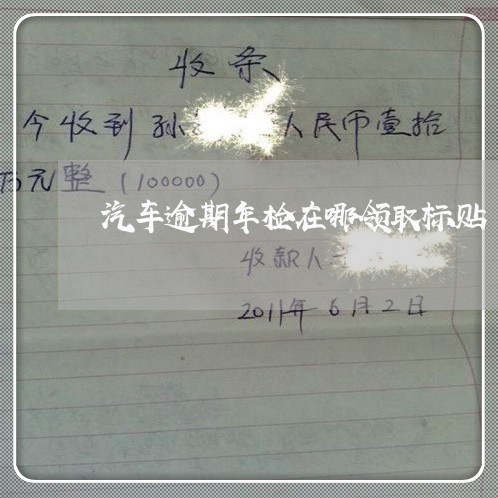 收条
今收到孙 人民币壹拾
万元整（100000）
汽车逾期年检在哪领取标贴
收款人
2011年6月2日